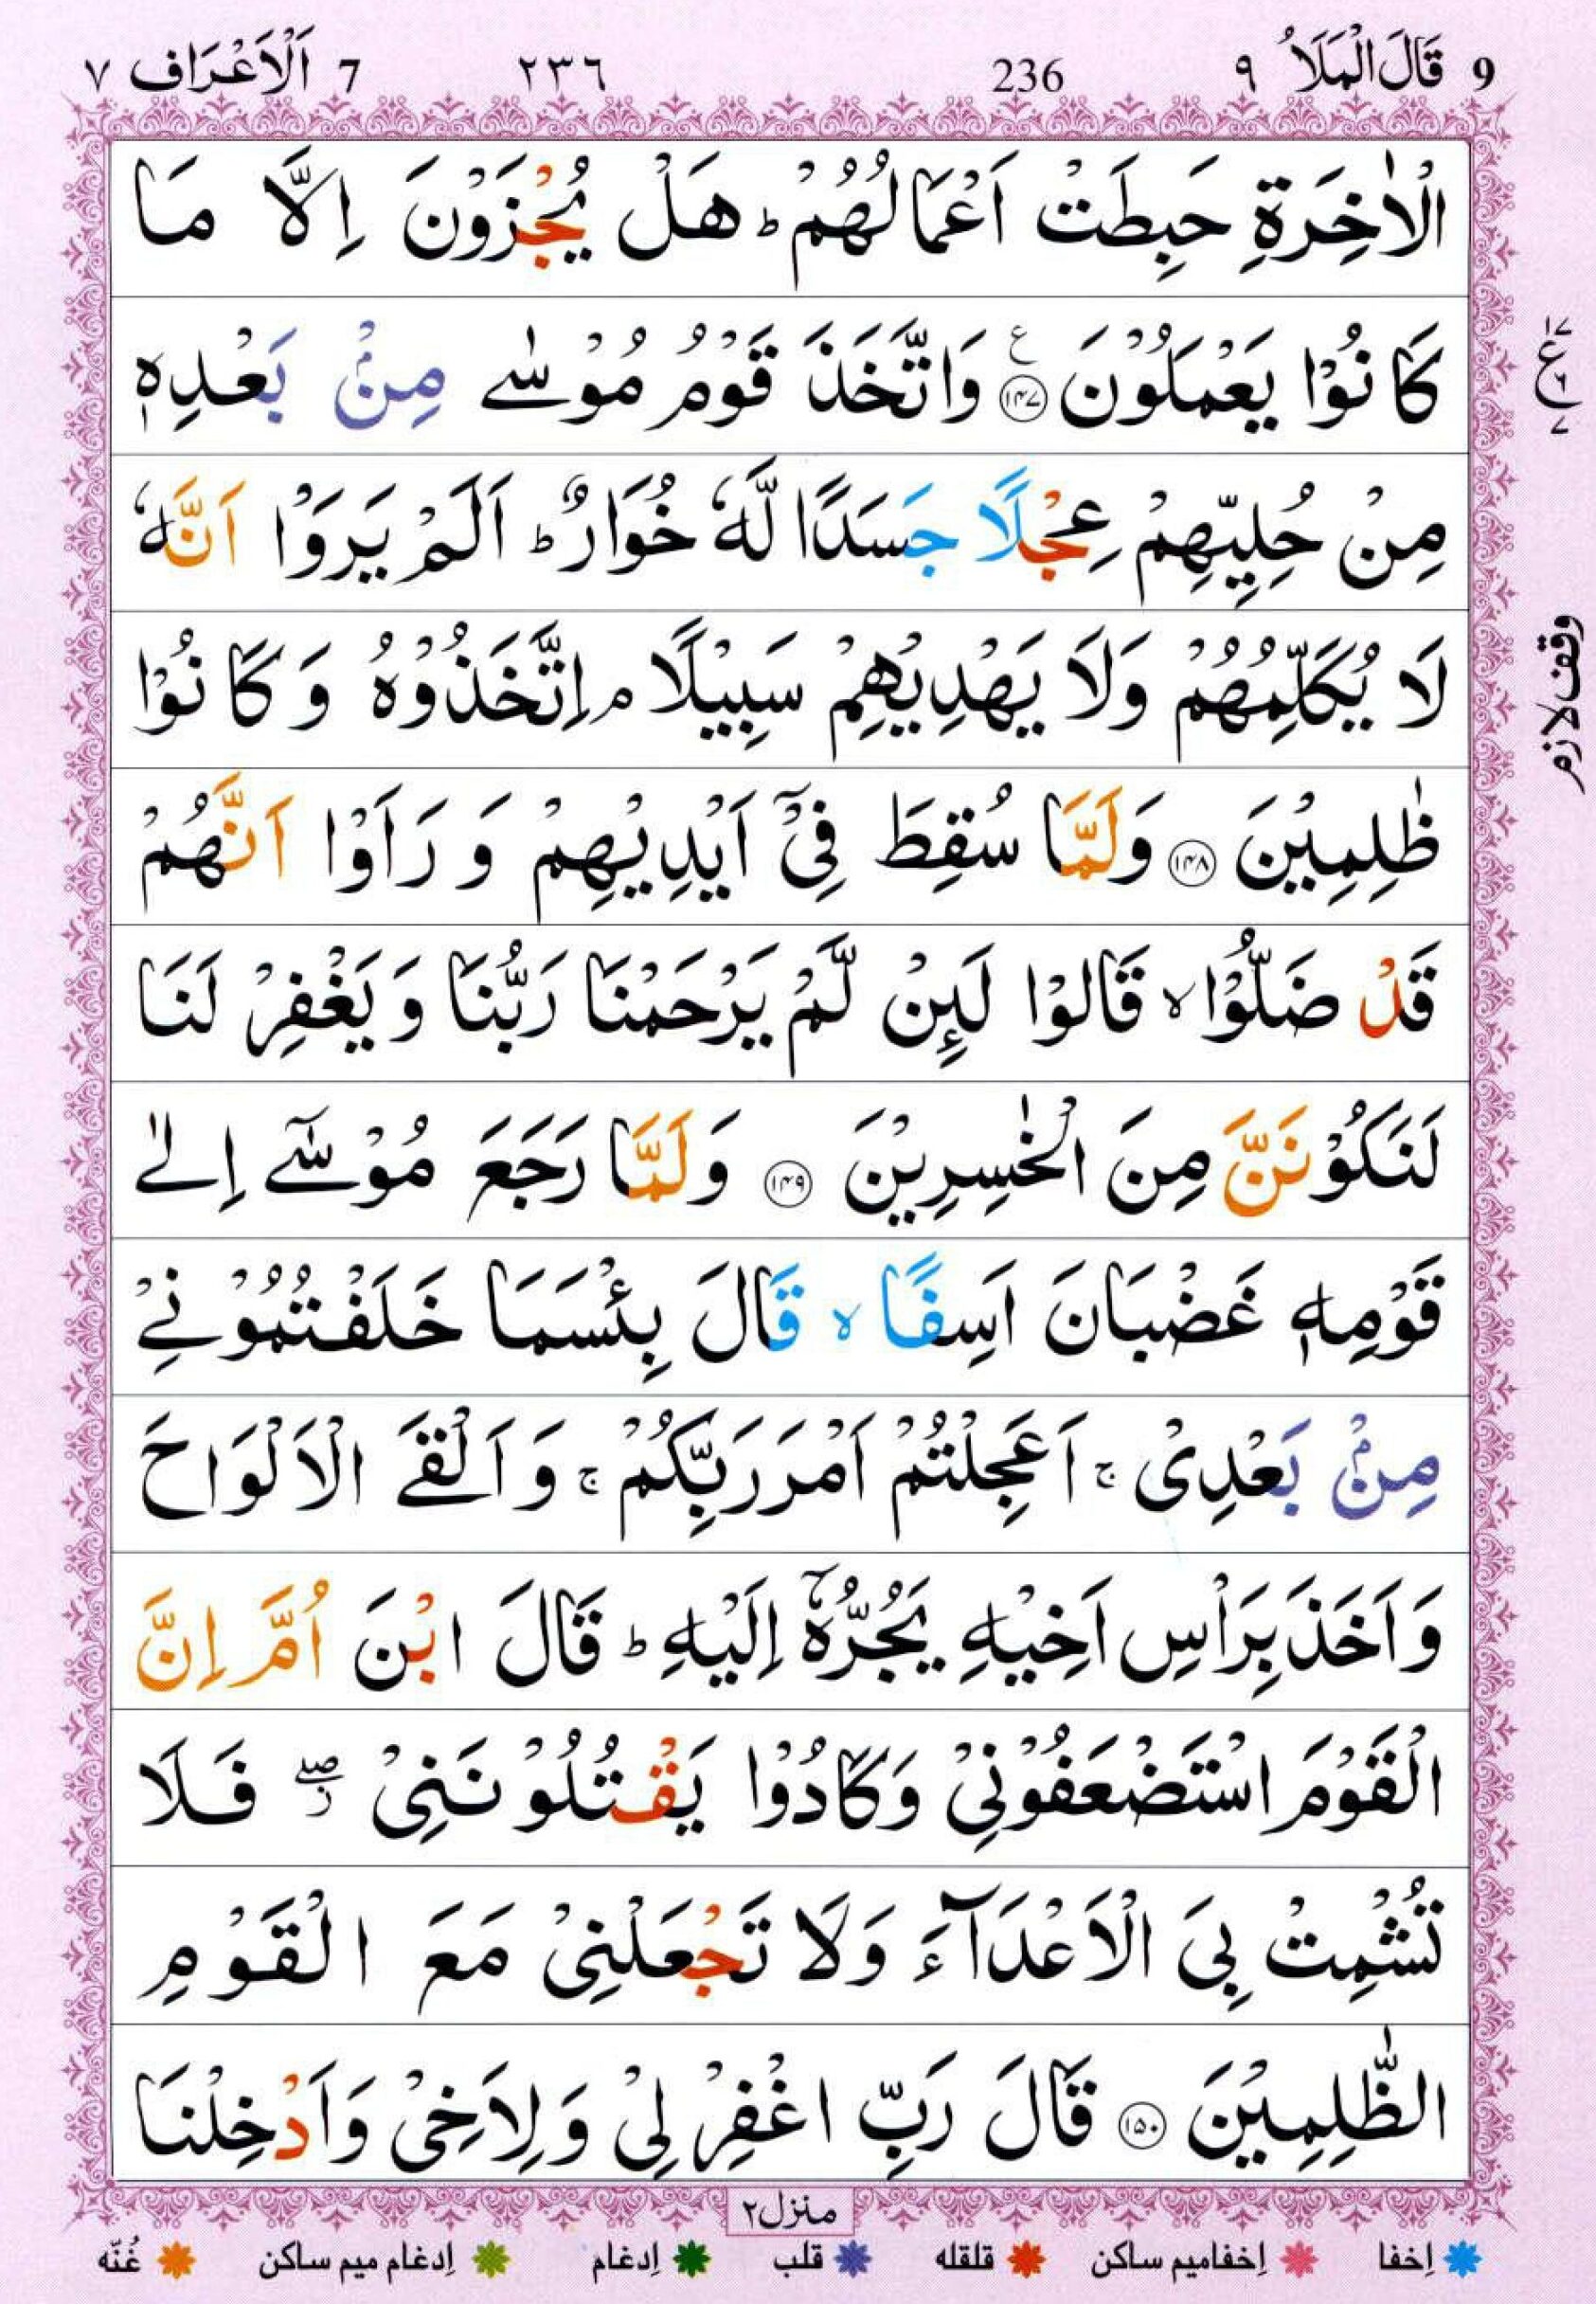 9 قَالَ الْمَلَاُ ٩ 236 ٢٣٦ 7 اَلْاَعْرَاف ٧
الْاٰخِرَةِ حَبِطَتْ اَعْمَالُهُمْ ؕ هَلْ يُجْزَوْنَ اِلَّا مَا
كَانُوْا يَعْمَلُوْنَ ﴿۱۴۷﴾ ع وَاتَّخَذَ قَوْمُ مُوْسٰى مِنْۢ بَعْدِهٖ
مِنْ حُلِيِّهِمْ عِجْلًا جَسَدًا لَّهٗ خُوَارٌ ؕ اَلَمْ يَرَوْا اَنَّهٗ
لَا يُكَلِّمُهُمْ وَلَا يَهْدِيْهِمْ سَبِيْلًا ۘ اِتَّخَذُوْهُ وَكَانُوْا
ظٰلِمِيْنَ ﴿۱۴۸﴾ وَلَمَّا سُقِطَ فِيْۤ اَيْدِيْهِمْ وَرَاَوْا اَنَّهُمْ
قَدْ ضَلُّوْا ۙ قَالُوْا لَئِنْ لَّمْ يَرْحَمْنَا رَبُّنَا وَيَغْفِرْ لَنَا
لَنَكُوْنَنَّ مِنَ الْخٰسِرِيْنَ ﴿۱۴۹﴾ وَلَمَّا رَجَعَ مُوْسٰۤى اِلٰى
قَوْمِهٖ غَضْبَانَ اَسِفًا ۙ قَالَ بِئْسَمَا خَلَفْتُمُوْنِيْ
مِنْۢ بَعْدِيْ ۚ اَعَجِلْتُمْ اَمْرَ رَبِّكُمْ ۚ وَاَلْقَى الْاَلْوَاحَ
وَاَخَذَ بِرَاْسِ اَخِيْهِ يَجُرُّهٗۤ اِلَيْهِ ؕ قَالَ ابْنَ اُمَّ اِنَّ
الْقَوْمَ اسْتَضْعَفُوْنِيْ وَكَادُوْا يَقْتُلُوْنَنِيْ ۖز فَلَا
تُشْمِتْ بِيَ الْاَعْدَآءَ وَلَا تَجْعَلْنِيْ مَعَ الْقَوْمِ
الظّٰلِمِيْنَ ﴿۱۵۰﴾ قَالَ رَبِّ اغْفِرْ لِيْ وَلِاَخِيْ وَاَدْخِلْنَا
۱۷ ع ٦ ۷
وقف لازم
منزل ۲
اِخفا اِخفا میم ساکن قلقله قلب اِدغام اِدغام میم ساکن غُنّه